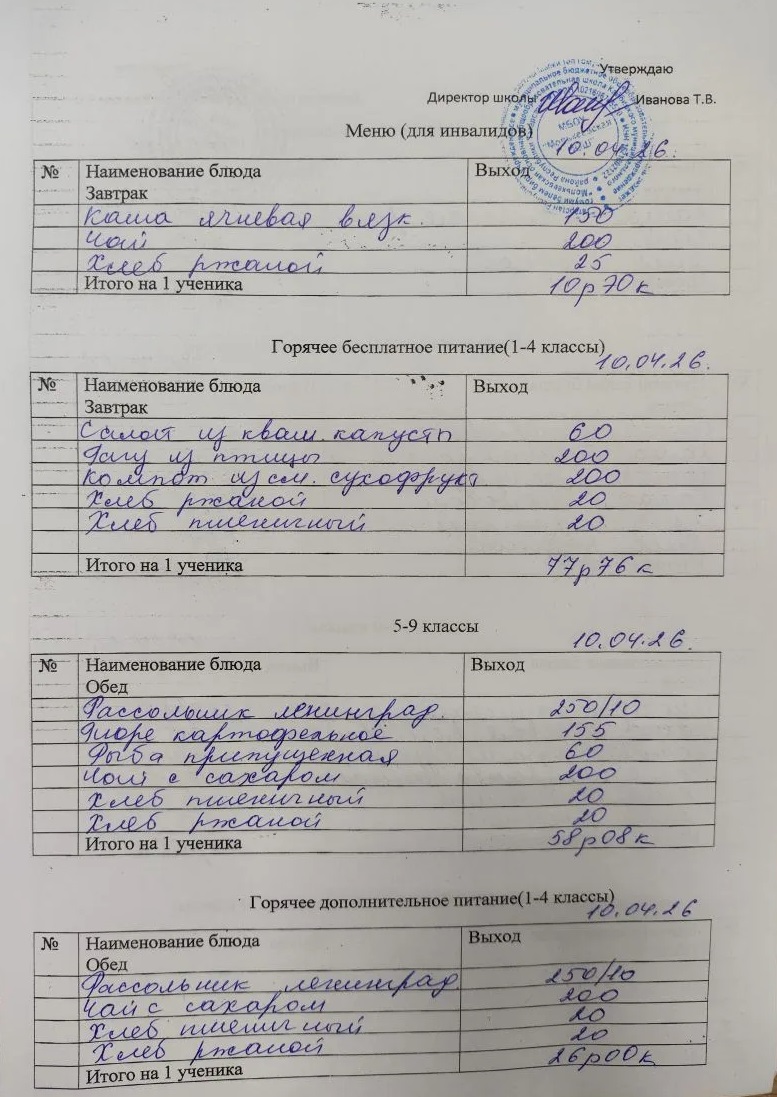 Утверждаю
Директор школы Иванова Т.В.
Меню (для инвалидов)
10.04.26.
№ Наименование блюда Выход
Завтрак
Каша ячневая вязк. 150
Чай 200
Хлеб ржаной 25
Итого на 1 ученика 10р70к
Горячее бесплатное питание(1-4 классы)
10.04.26.
№ Наименование блюда Выход
Завтрак
Салат из кваш. капусты 60
Рагу из птицы 200
Компот из см. сухофрукт 200
Хлеб ржаной 20
Хлеб пшеничный 20
Итого на 1 ученика 77р76к
5-9 классы
10.04.26.
№ Наименование блюда Выход
Обед
Рассольник ленинград. 250/10
Пюре картофельное 155
Рыба припущенная 60
Чай с сахаром 200
Хлеб пшеничный 20
Хлеб ржаной 20
Итого на 1 ученика 58р08к
Горячее дополнительное питание(1-4 классы)
10.04.26
№ Наименование блюда Выход
Обед
Рассольник ленинград. 250/10
Чай с сахаром 200
Хлеб пшеничный 20
Хлеб ржаной 20
Итого на 1 ученика 26р00к